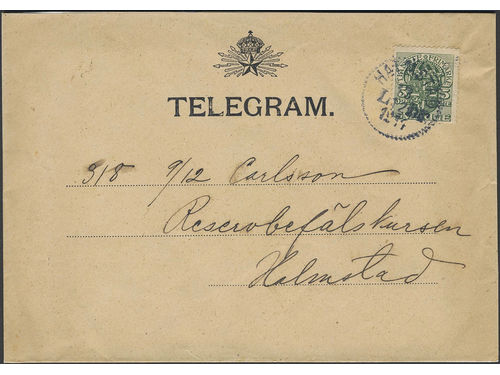 TELEGRAM.
318 9/12 Carlsson
Reservbefälskursen
Halmstad